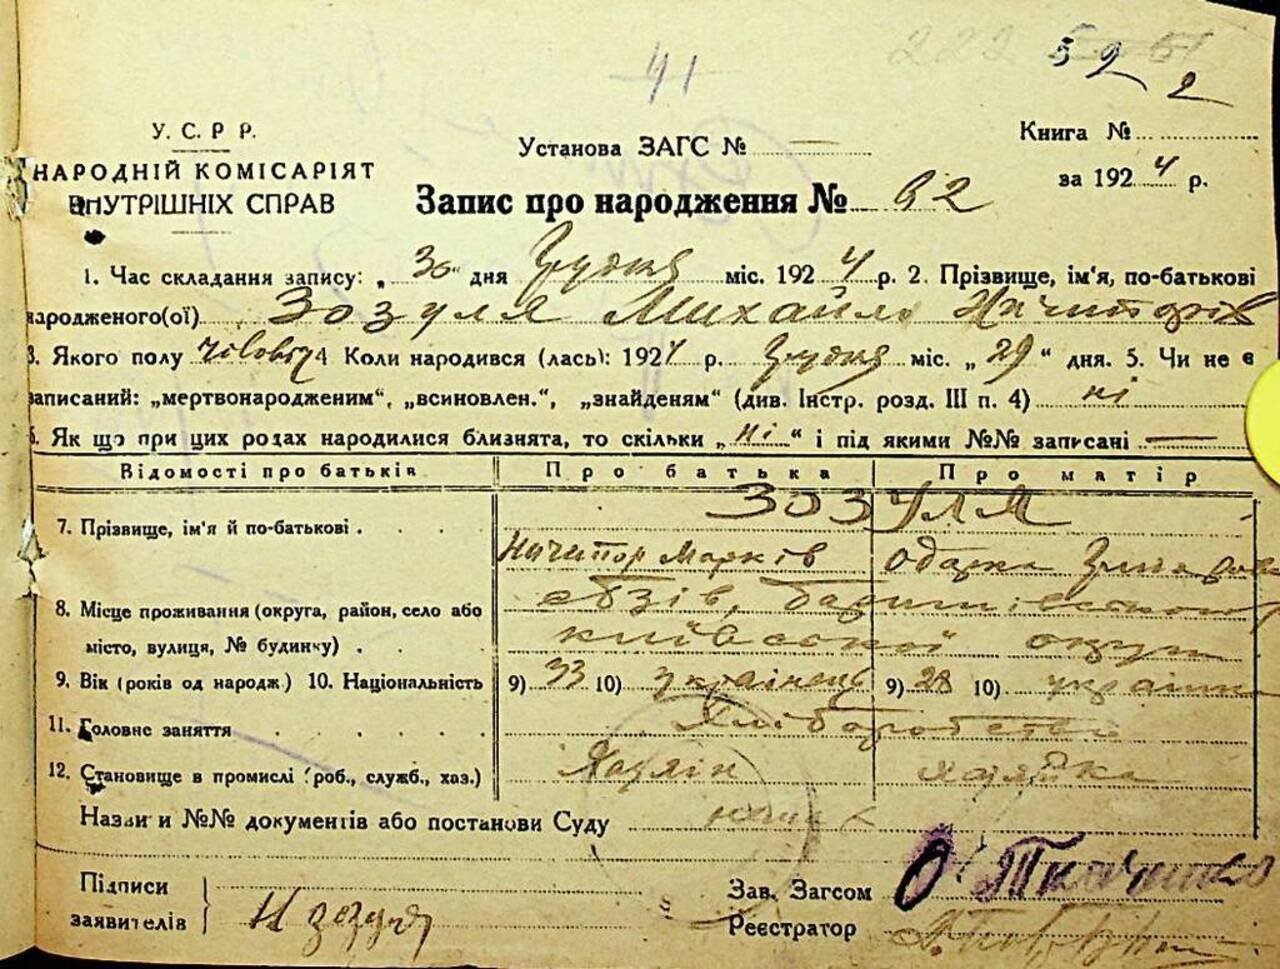 41
222
52
2
У. С. Р Р.
НАРОДНІЙ КОМІСАРІЯТ
ВНУТРІШНІХ СПРАВ
Установа ЗАГС № —
Книга №
за 1924 р.
Запис про народження № 62
1. Час складання запису: „ 30 “ дня Грудня міс. 1924 р. 2. Прізвище, ім'я, по-батькові
народженого(ої) Зозуля Михайло Ничипорів
3. Якого полу чоловіч 4 Коли народився (лась): 1924 р. Грудня міс. „ 29 “ дня. 5. Чи не є
записаний: „мертвонародженим“, „всиновлен.“, „знайденям“ (див. Інстр. розд. III п. 4) ні
6. Як що при цих родах народилися близнята, то скільки „ ні “ і під якими №№ записані —
Відомості про батьків Про батька Про матір
7. Прізвище, ім'я й по-батькові . . . . ЗОЗУЛЯ
Ничипор Марків Одарка
8. Місце проживання (округа, район, село або
місто, вулиця, № будинку) . . київської округи
9. Вік (років од народж) 10. Національність 9) 33 10) українець 9) 28 10) українка
11. Головне заняття . . . . . Хліборобство
12. Становище в промислі (роб., служб., хаз.) Хазяїн хазяйка
Назви и №№ документів або постанови Суду
Підписи
заявителів Н Зозуля
Зав. Загсом О. Ткаченко
Реєстратор